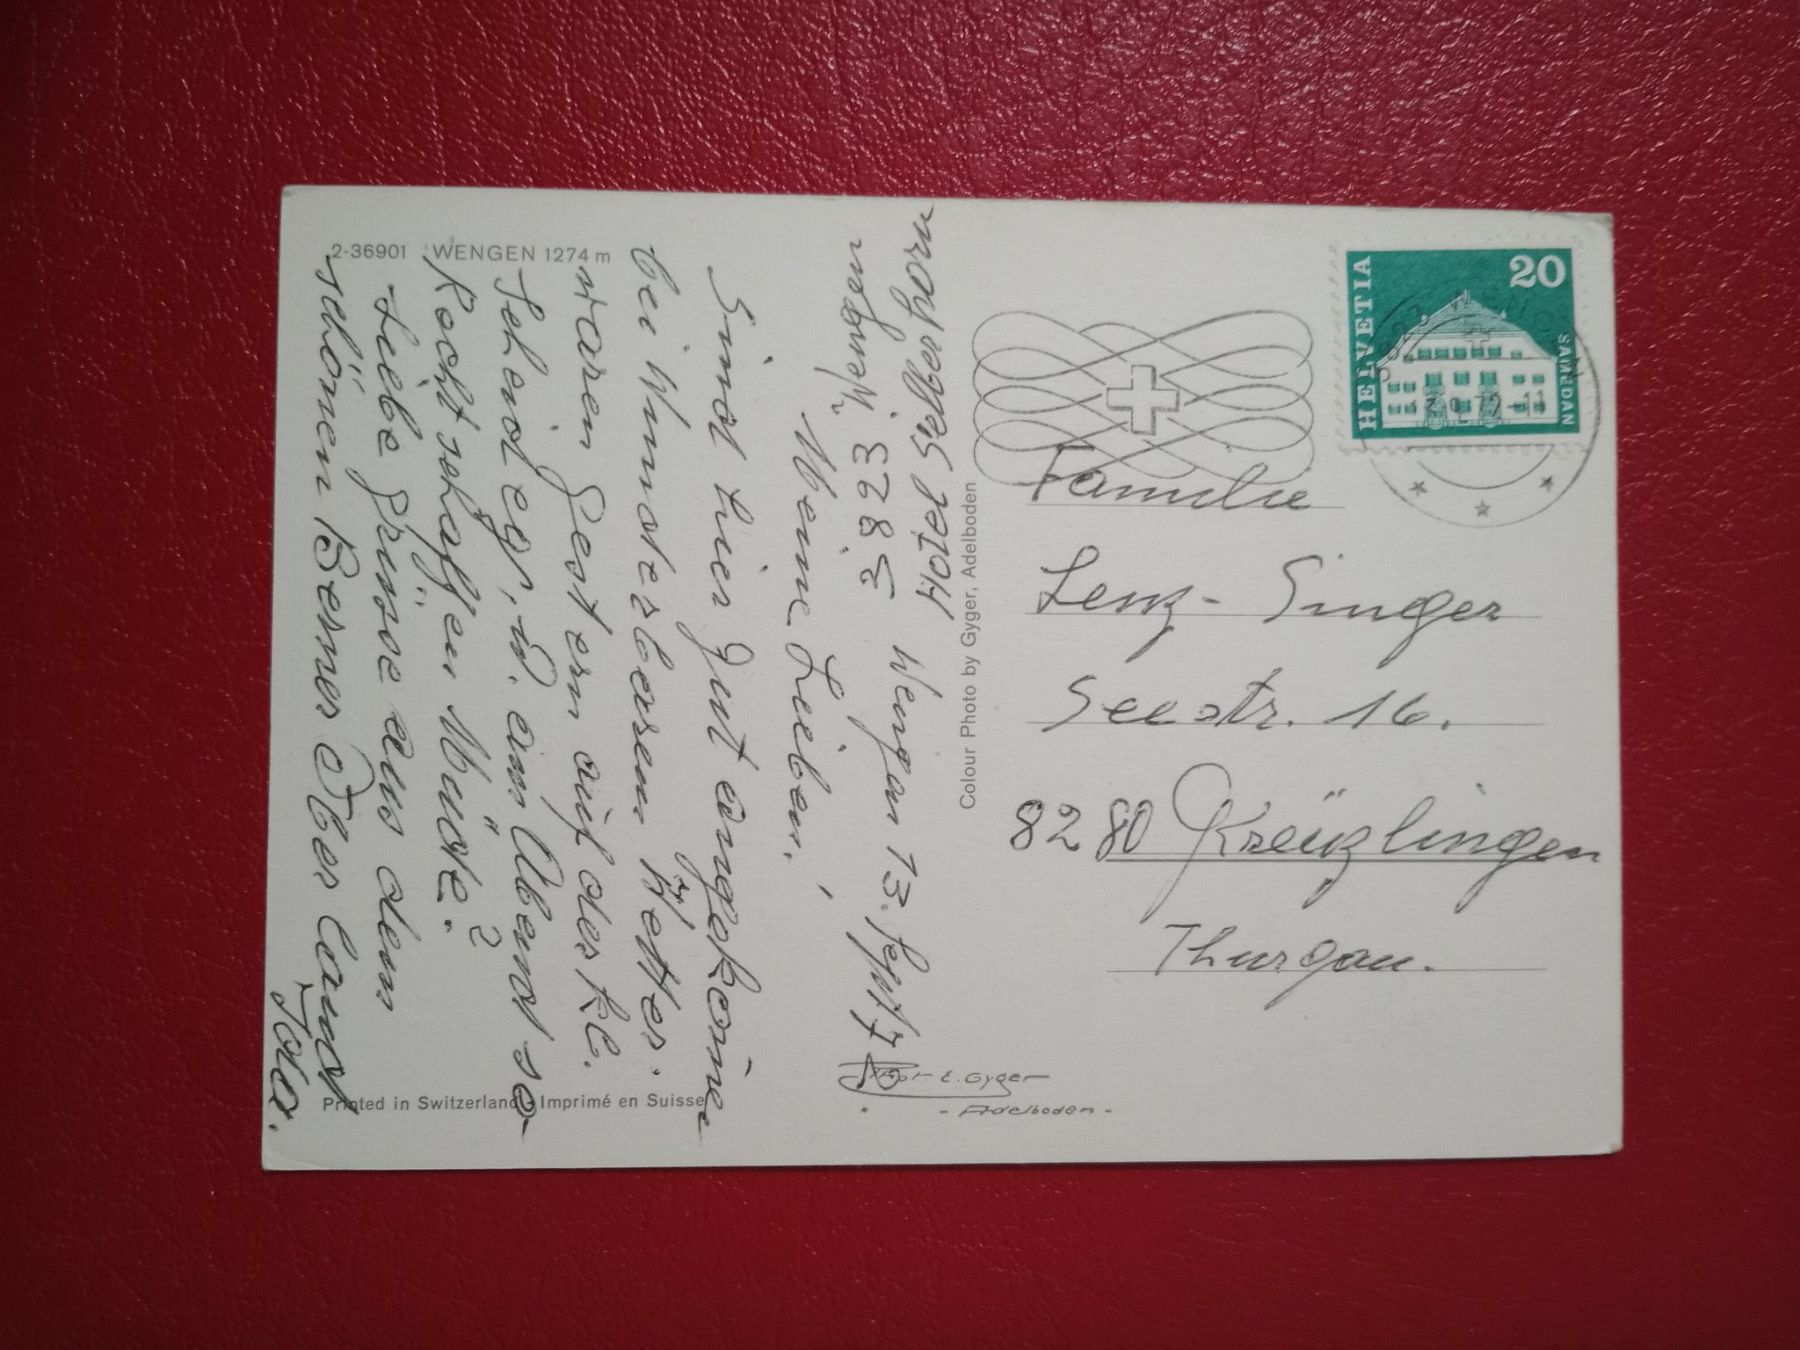 2-36901 WENGEN 1274 m
Hotel Silberhorn
3823 Wengen
Wengen 13. Sept. 7
Meine Lieben!
Sind hier gut angekom̄en
bei wunderbarem Wetter.
waren gestern auf der kl.
Scheidegg, u. am Abend so
Rechtschaffen Müde?
Liebe Grüsse aus dem
schönen Berner Oberland
Ida.
Printed in Switzerland - Imprimé en Suisse
Colour Photo by Gyger, Adelboden
E. Gyger
- Adelboden -
HELVETIA
20
SAMEDAN
Familie
Lenz - Singer
Seestr. 16.
8280 Kreüzlingen
Thurgau.